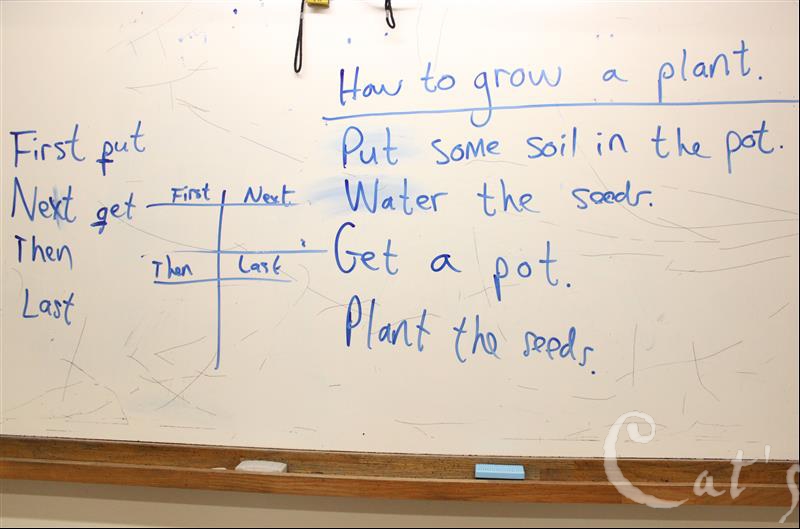 How to grow a plant.
Put some soil in the pot.
Water the seeds.
Get a pot.
Plant the seeds.
First put
Next get
Then
Last
First Next
Then Last
Cat's